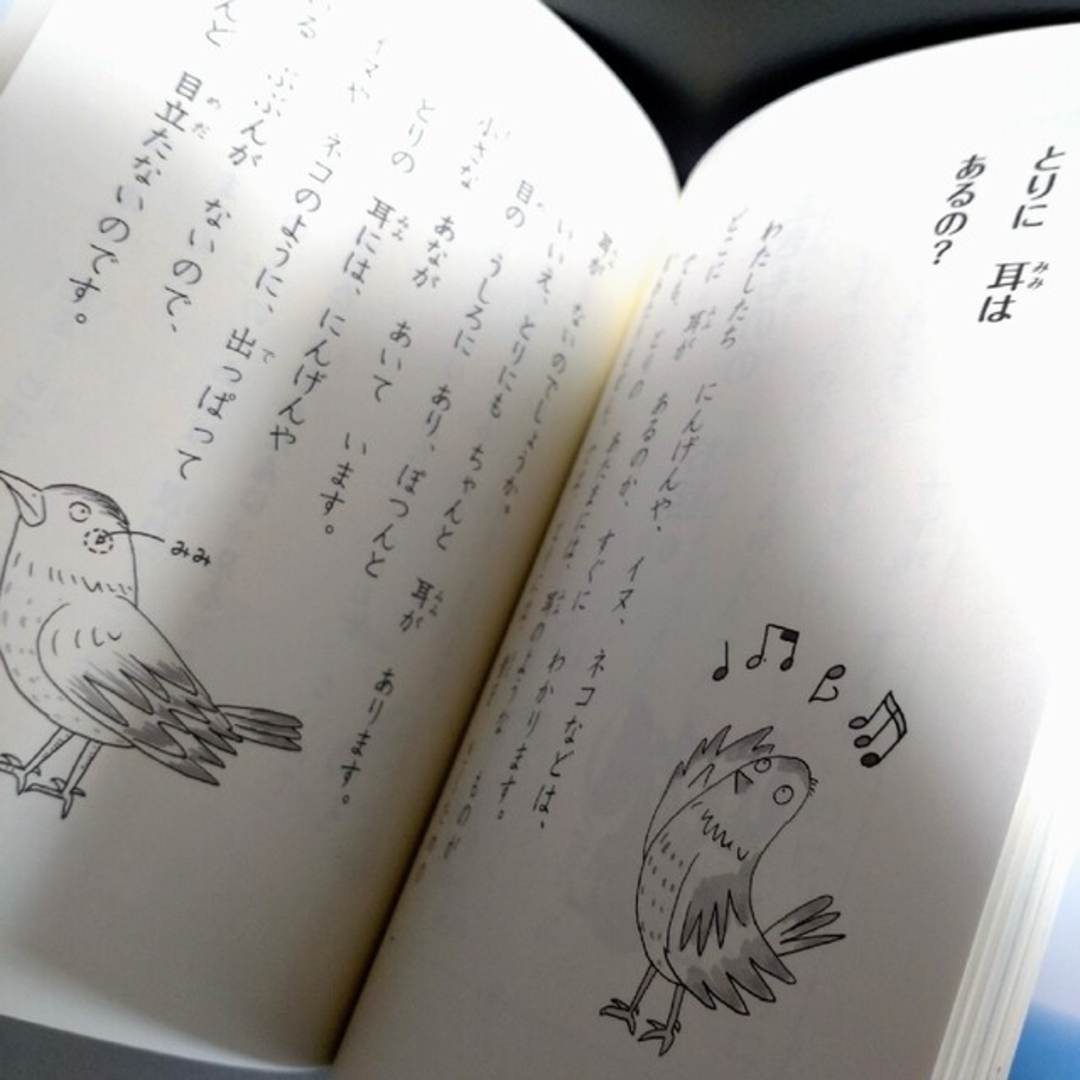 とりに 耳は
あるの？
わたしたち にんげんや、 イヌ、 ネコなどは、
どこに 耳が あるのか、 すぐに わかります。
でも、 とりの あたまには、 耳のような ものが
耳が ないのでしょうか。
いいえ、とりにも ちゃんと 耳が あります。
目の うしろに あり、ぽつんと
小さな あなが あいて います。
とりの 耳には、にんげんや
イヌや ネコのように、出っぱって
いる ぶぶんが ないので、
んど 目立たないのです。
みみ